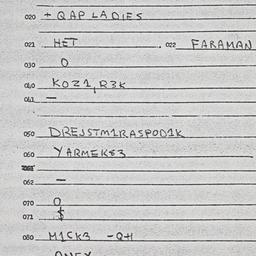 020 + QAP LADIES
021 HET 022 FARAMAN
030 O
040 KOZ1, R3K
041 —
050 DREJSTM1RASPOD1K
060 YARMEK63
062 —
070 O
071 $
080 M1CK3 -QH